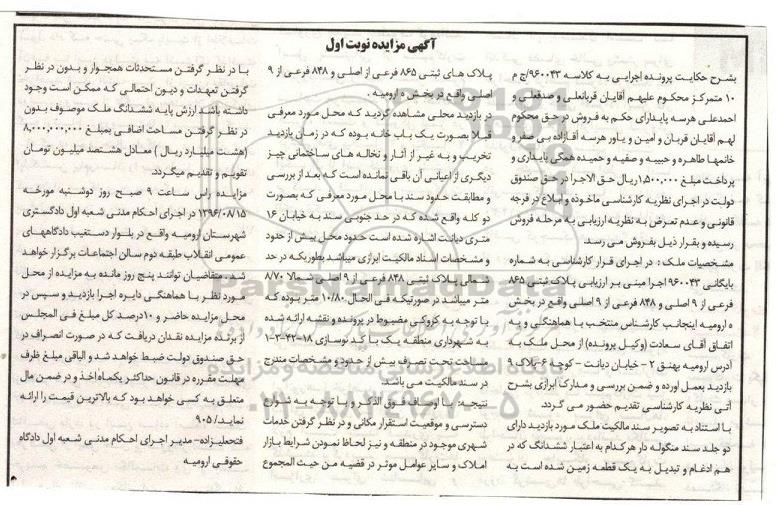 آگهی مزایده نوبت اول
بشرح حکایت پرونده اجرایی به کلاسه ۹۶۰۰۴۳/ج م
۱۰ متمرکز محکوم علیهم آقایان قربانعلی و صدقعلی و
احمدعلی هرسه پایدارای حکم به فروش در حق محکوم
لهم آقایان قربان و امین و یاور هرسه آقازاده بی صفر و
خانمها طاهره و حبیبه و صفیه و حمیده همگی پایداری و
پرداخت مبلغ ۱,۵۰۰,۰۰۰ ریال حق الاجرا در حق صندوق
دولت در اجرای نظریه کارشناسی ماخوذه و ابلاغ در فرجه
قانونی و عدم تعرض به نظریه ارزیابی به مرحله فروش
رسیده و بقرار ذیل بفروش می رسد
مشخصیات ملک : در اجرای قرار کارشناسی به شماره
بایگانی ۹۶۰۰۴۳ اجرا مبنی بر ارزیابی پلاک ثبتی ۸۶۵
فرعی از ۹ اصلی و ۸۴۸ فرعی از ۹ اصلی واقع در بخش
۵ ارومیه اینجانب کارشناس منتخب با هماهنگی و به
اتفاق آقای سعادت (وکیل پرونده) از محل ملک به
آدرس ارومیه بهنق ۲ – خیابان دیانت – کوچه ۶ پلاک ۹
بازدید بعمل اورده و ضمن بررسی و مدارک ابرازی بشرح
آتی نظریه کارشناسی تقدیم حضور می گردد.
با استناد به تصویر سند مالکیت ملک مورد بازدید دارای
دو جلد سند منگوله دار هر کدام به اعتبار ششدانگ که در
هم ادغام و تبدیل به یک قطعه زمین شده است به
پلاک های ثبتی ۸۶۵ فرعی از اصلی و ۸۴۸ فرعی از ۹
اصلی واقع در بخش ۵ ارومیه .
در بازدید محلی مشاهده گردید که محل مورد معرفی
قبلا بصورت یک باب خانه بوده که در زمان بازدید
تخریب و به غیر از آثار و نخاله های ساختمانی چیز
دیگری از اعیانی آن باقی نمانده است که بعد از بررسی
و مطابقت حدود سند با محل مورد معرفی که بصورت
دو کله واقع شده که در حد جنوبی سند به خیابان ۱۶
متری دیانت اشاره شده است حدود محل بیش از حدود
و مشخصات اسناد مالکیت ابرازی میباشد بطوریکه در حد
شمالی پلاک ثبتی ۸۴۸ فرعی از ۹ اصلی شمالا ۸/۷۰
متر میباشد در صورتیکه فی الحال ۱۰/۸۰ متر بوده که
با توجه به کروکی مضبوط در پرونده و نقشه ارائه شده
به شهرداری منطقه یک با کد نوسازی ۱۸-۴۲-۳-۱
مساحت تحت تصرف بیش از حدود و مشخصات مندرج
در سند مالکیت می باشد.
نتیجه : با اوصاف فوق الذکر و با توجه به شارع
دسترسی و موقعیت استقرار مکانی و در نظر گرفتن خدمات
شهری موجود در منطقه و نیز لحاظ نمودن شرایط بازار
املاک و سایر عوامل موثر در قضیه من حیث المجموع
با در نظر گرفتن مستحدثات همجوار و بدون در نظر
گرفتن تعهدات و دیون احتمالی که ممکن است وجود
داشته باشد ارزش پایه ششدانگ ملک موصوف بدون
در نظر گرفتن مساحت اضافی بمبلغ ۸,۰۰۰,۰۰۰,۰۰۰
(هشت میلیارد ریال ) معادل هشتصد میلیون تومان
تقویم و تقدیم میگردد.
مزایده راس ساعت ۹ صبح روز دوشنبه مورخه
۱۳۹۶/۰۸/۱۵ در اجرای احکام مدنی شعبه اول دادگستری
شهرستان ارومیه واقع در بلوار دستغیب دادگاههای
عمومی انقلاب طبقه دوم سالن اجتماعات برگزار خواهد
شد. متقاضیان توانند پنج روز مانده به مزایده از محل
مورد نظر با هماهنگی دایره اجرا بازدید و سپس در
محل مزایده حاضر و ۱۰درصد کل مبلغ فی المجلس
از برنده مزایده نقدان دریافت که در صورت انصراف در
حق صندوق دولت ضبط خواهد شد و الباقی مبلغ ظرف
مهلت مقرره در قانون حداکثر یکماه اخذ و در ضمن مال
متعلق به کسی خواهد بود که بالاترین قیمت را ارائه
نماید/ ۹۰۵
فتحعلیزاده – مدیر اجرای احکام مدنی شعبه اول دادگاه
حقوقی ارومیه
ParsNamadData
پایگاه اطلاع رسانی مناقصه و مزایده
۰۲۱-۸۸۳۴۹۶۷۰-۵